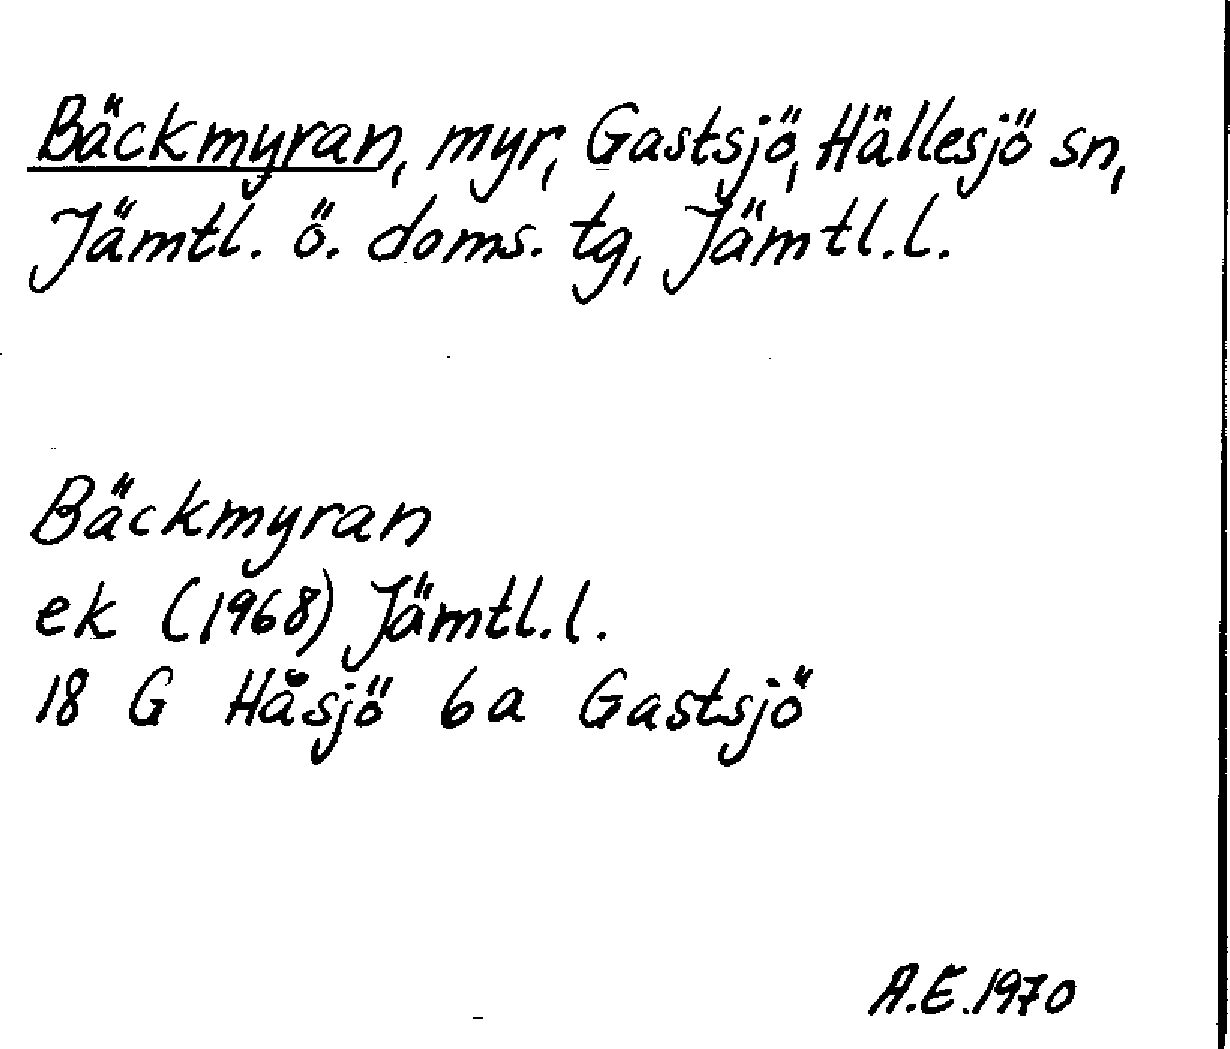 Bäckmyran, myr, Gastsjö, Hällesjö sn,
Jämtl. ö. doms. tg, Jämtl.l.
Bäckmyran
ek (1968) Jämtl.l.
18 G Håsjö 6a Gastsjö
A.E.1970